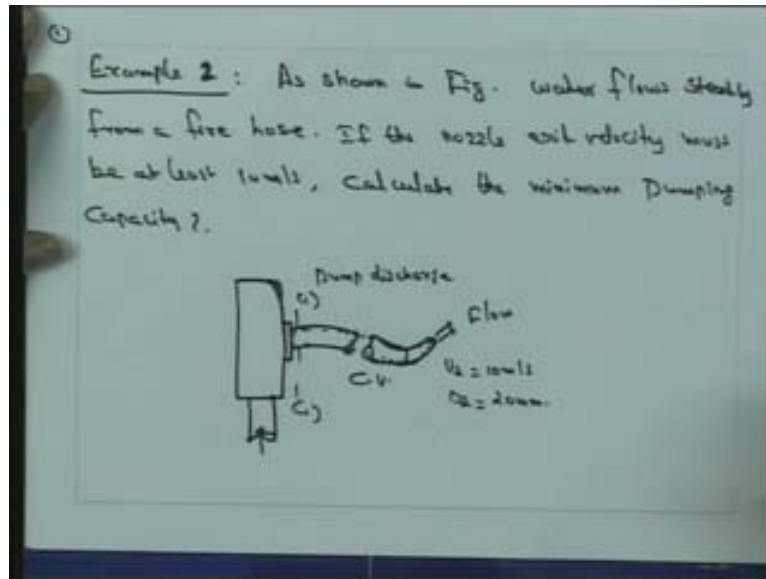 ①
Example 2 : As shown in Fig. water flows steadly
from a fire hose. If the nozzle exit velocity must
be at least 10 m/s, Calculate the minimum Pumping
Capacity ?.
Pump discharge
(1)
Flow
C.V.
V2 = 10 m/s
D2 = 20 mm.